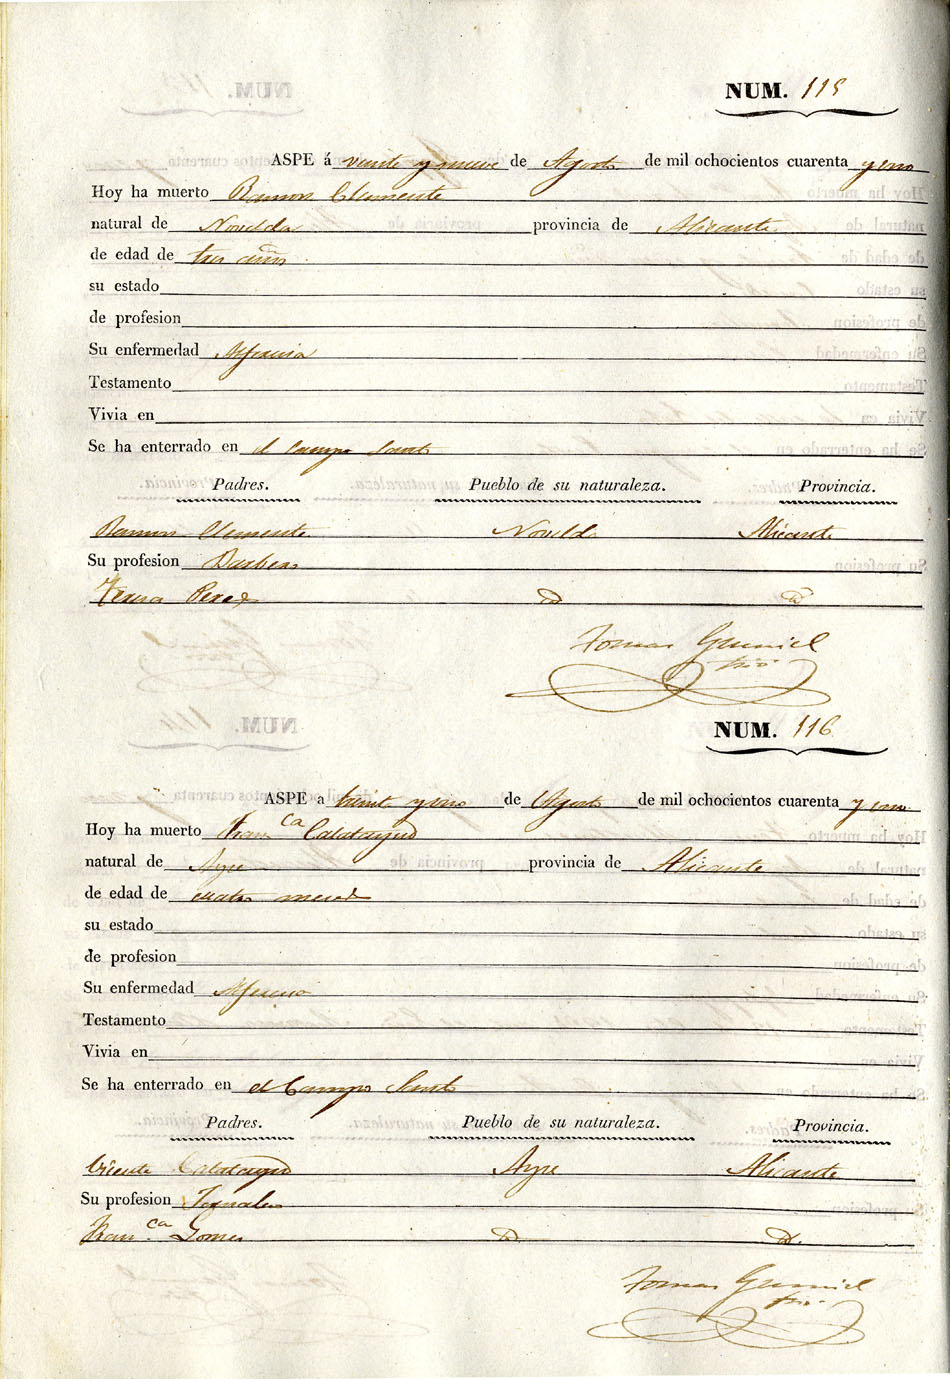 NUM. 115
ASPE á veinte y nueve de Agosto de mil ochocientos cuarenta y uno
Hoy ha muerto Ramon Clemente
natural de Novelda provincia de Alicante
de edad de tres años
su estado
de profesion
Su enfermedad Alferecia
Testamento
Vivia en
Se ha enterrado en el Campo Santo
Padres. Pueblo de su naturaleza. Provincia.
Ramon Clemente Novelda Alicante
Su profesion Barbero
Teresa Perez D D
Tomas Gumiel
NUM. 116
ASPE a treinta y uno de Agosto de mil ochocientos cuarenta y uno
Hoy ha muerto Franca Calatayud
natural de Aspe provincia de Alicante
de edad de cuatro meses
su estado
de profesion
Su enfermedad Alferecia
Testamento
Vivia en
Se ha enterrado en el Campo Santo
Padres. Pueblo de su naturaleza. Provincia.
Vicente Calatayud Aspe Alicante
Su profesion Jornalero
Franca Gomes D D
Tomas Gumiel